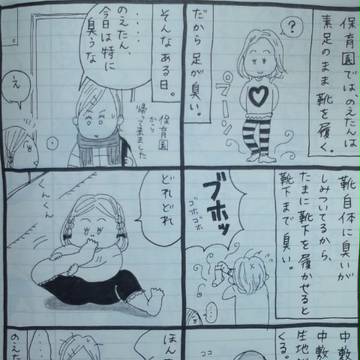 保育園では、のえたんは
素足のまま靴を履く。
？
プ〜ン
だから足が臭い。
靴自体に臭いが
しみついてるから、
たまに靴下を履かせると
靴下まで臭い。
ブホッ
ゴホ
ゴホ
中敷
中敷
生地
くる。
そんなある日。
・・・・・・
のえたん、
今日は特に
臭うな
え
保育園
から
帰って来ました
どれどれ
くんくん
ほん
のえた